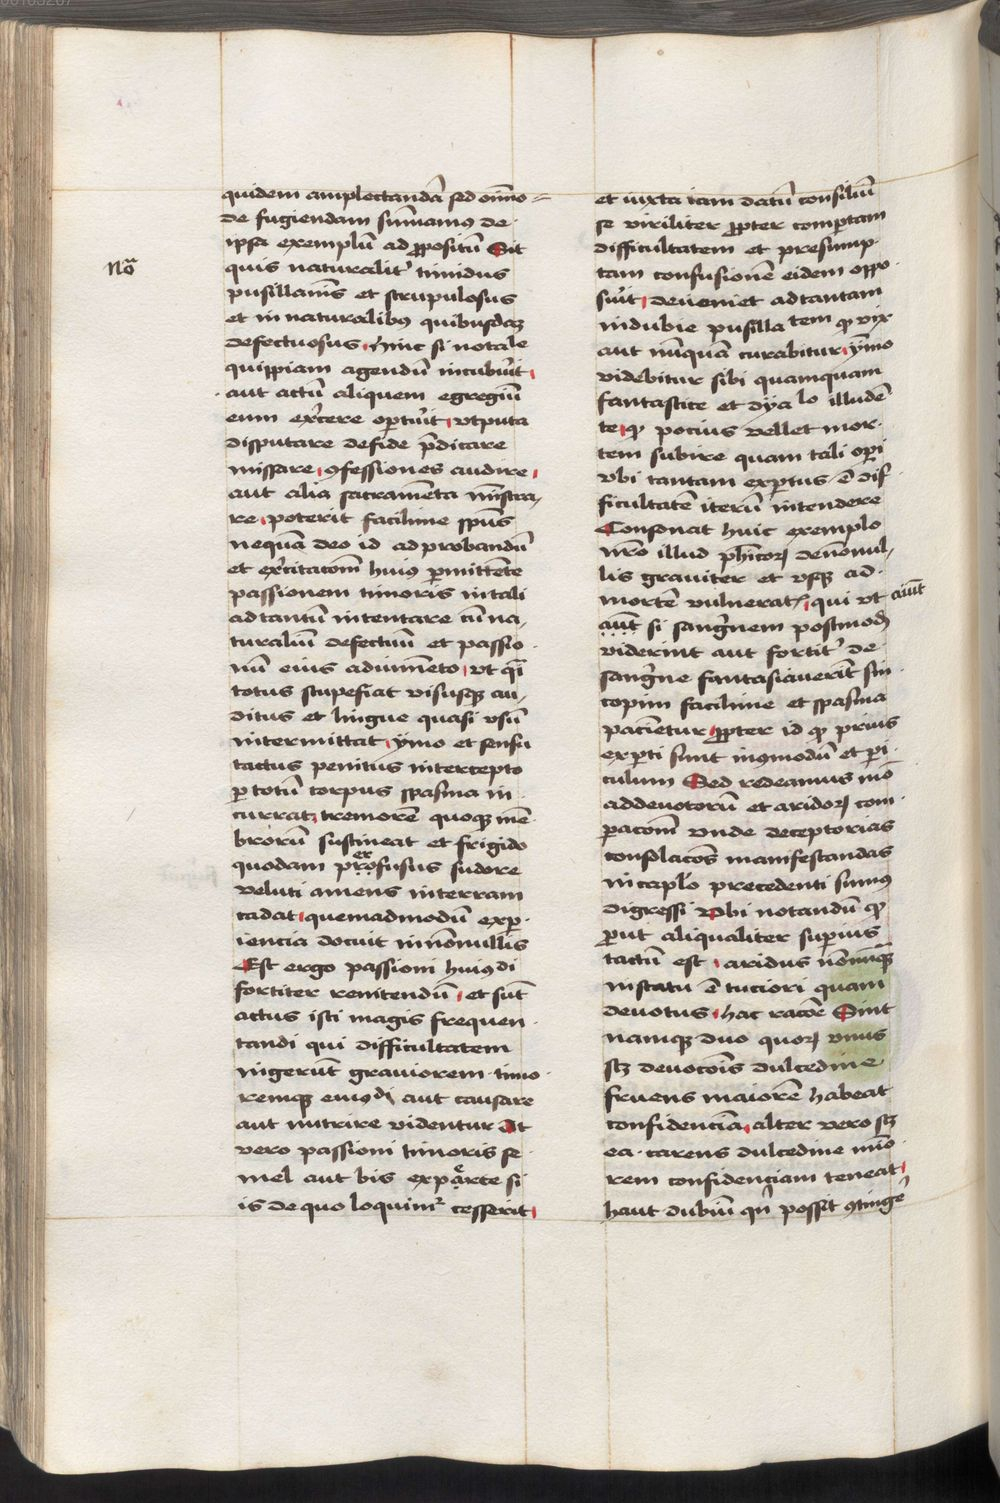 00103267
quidem amplectandā sed om̄mo=
de fugiendam sum̄amus de
ipsa exemplū ad ꝓpositū Sit
Nōᵃ
quis naturalit᷑ timidus
pusillanīs et scrupulosus
et in naturalibꝰ quibusdaꝫ
defectuosus hinc si notale
quippiam agendū incubūit
aut actū aliquem egregiū
eum exercere oportūit vtputa
disputare defide p̄dicare
missare ꝯfessiones audire
aut alia sacramēta mīstra/
re poterit facilime spūs
nequā deo id ad probandū
et exercitatōm huiꝰ ꝑmittēte
passionem timoris in tali
ad tantū intentare cū na/
turaliū defectuū et passio
nū eius aduniēto vt qi
totus stupefiat visusqꝫ au/
ditus et lingue quasi vsū
intermittat ymo et sensu
tactus penitus intercepto
ꝑ totū corpus spasma in
currat tremorē quoqꝫ mē
brorū sustineat et frigido
quodam profusus sudore
veluti amens in terram
cadat quemadmodū expeꝛ
iencia docuit in nōnullis
Est ergo passioni huiꝰdi
fortiter renitendū et sūt
actus isti magis frequen
tandi qui difficultatem
nigerūt grauiorem timo
remqꝫ eiusdi aut causare
aut nutrire videntur At
vero passioni timoris se
mel aut bis ex parte si
is de quo loquimᷣ cesserit
et iuxta iam datū consiliū
se viriliter ꝓpter comꝑtam
difficultatem et presump
tam confusionē eidem oppo
sūit deueniet ad tantam
indubie pusilla tem qꝫ vix
aut nūquā curabitur ymo
videbitur sibi quamquam
fantastice et dyalo illudē
te qꝫ pocius vellet mor
tem subire quam tali oꝑi
vbi tantam exꝑtus ē dif
ficultatē iterū intendere
Consonat huic exemplo
nr̄o illud phicoꝝ denōnul/
lis grauiter et vsqꝫ ad
mortē vulneratꝭ qui vt aiūt
aūt si sangwnem postmodū
viderint aut fortit᷑ de
sangwne fantasiauerīt sin
copim facilime et spasma
pacientur ꝓpter id qꝫ prius
exꝑti sunt incōmodū et ꝑi
culum Sed redeamus mō
ad deuotorū et aridoꝝ com
paracōm vnde deceptorias
consolacōes manifestandas
in caplo precedenti sumꝰ
digressi Vbi notandū qꝫ
prout aliqualiter suꝑius
tactū est aridus nōnūqꝫ
in statu ē tuciori quam
deuotus hac racōe Sint
namqꝫ duo quoꝝ vnus
scꝫ deuocōis dulcedine
fruens maiorē habeat
confidenciā alter vero scꝫ
ea carens dulcedine mīo
rem confidenciam teneat
haut dubiū qn possit ꝯtinge᷑